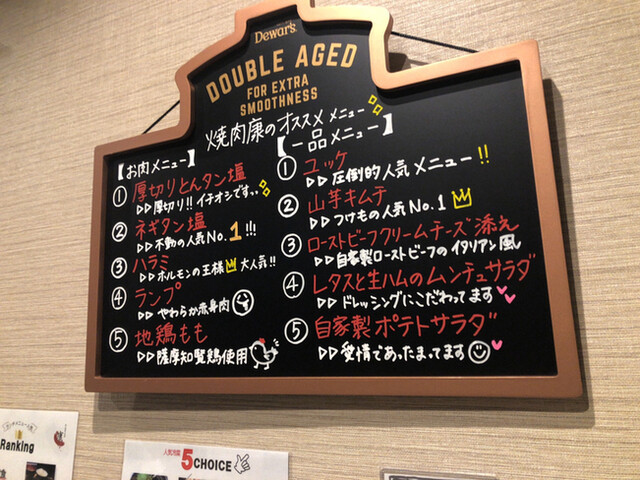 Dewar's
DOUBLE AGED
FOR EXTRA
SMOOTHNESS
焼肉康のオススメメニュー
【お肉メニュー】
① 厚切りとんタン塩
▷▷厚切り!! イチオシです..
② ネギタン塩
▷▷不動の人気No.1!!!
③ ハラミ
▷▷ホルモンの王様 大人気!!
④ ランプ
▷▷やわらか赤身肉
⑤ 地鶏もも
▷▷薩摩知覧鶏使用
【一品メニュー】
① ユッケ
▷▷圧倒的人気メニュー!!
② 山芋キムチ
▷▷つけもの人気No.1
③ ローストビーフクリームチーズ添え
▷▷自家製ローストビーフのイタリアン風
④ レタスと生ハムのムンチュサラダ
▷▷ドレッシングにこだわってます
⑤ 自家製ポテトサラダ
▷▷愛情であったまってます
Ranking
5 CHOICE